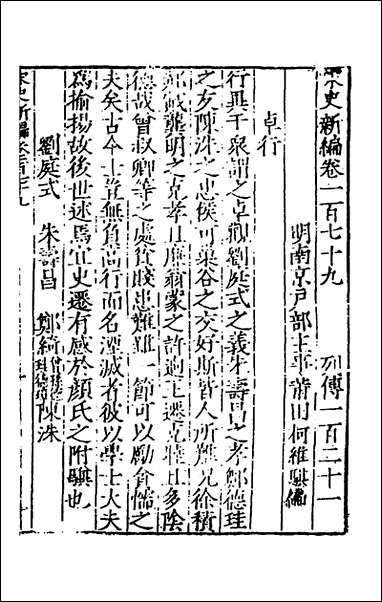 宋史新編卷一百七十九　列傳一百二十一
明南京戶部主事莆田何維騏編
卓行
行異于衆謂之卓觀劉庭式之義朱壽昌之孝鄭德珪
之友陳洙之忠侯可巢谷之交好斯皆人所難兄徐積
郭戭龔明之克孝且廉翁蒙之許迥上遷克睦且多陰
德哉曾叔卿等之處貧賤患難雖一節可以勵會懦之
夫矣古今士豈無負高行而名湮滅者彼以學士大夫
爲揄揚故後世述焉宜史遷有感於顏氏之附驥也
劉庭式　朱壽昌　鄭綺 德珪德璋 陳洙
宋史新編卷一百七十九